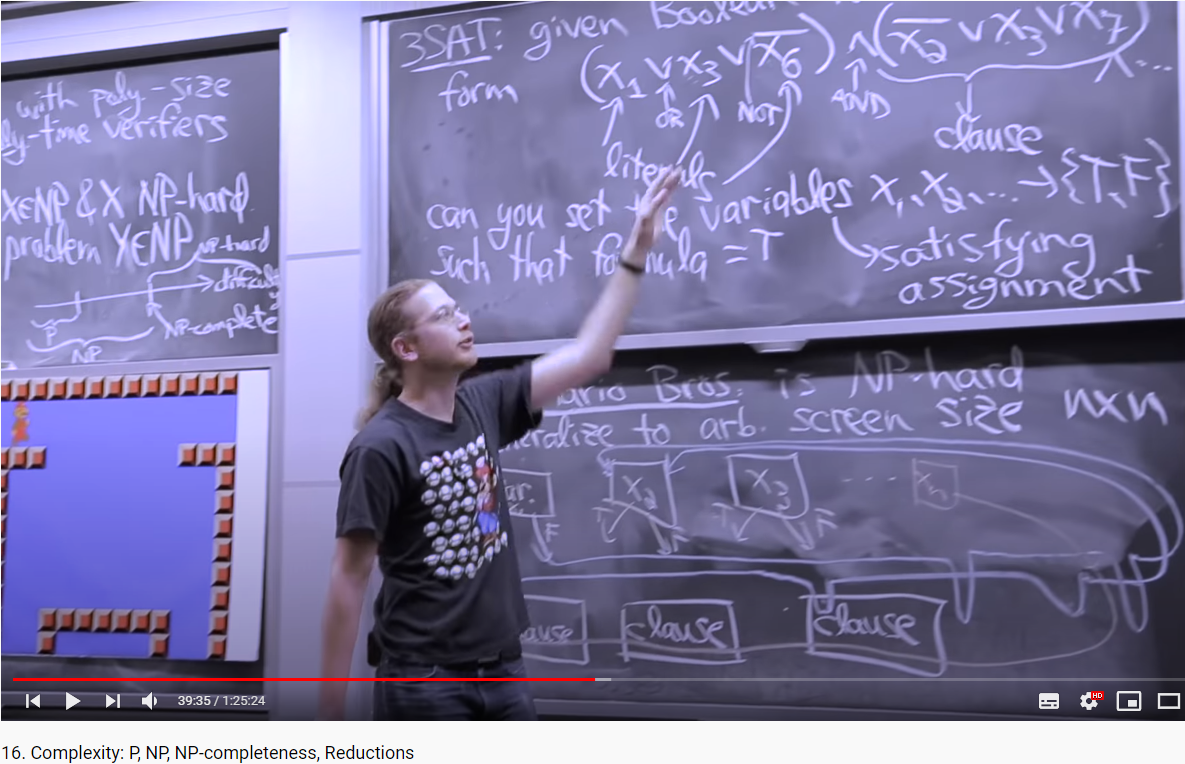 with poly-size
ly-time verifiers
X∈NP & X NP-hard
problem X∈NP
NP-hard
difficul
P
NP-complete
NP
3SAT: given Boolean
form (x₁ ∨ x₃ ∨ x̅₆) ∧ (x̅₂ ∨ x₃ ∨ x̅₇) ∧ ...
OR NOT AND
clause
literals
can you set the variables x₁, x₂, ... → {T,F}
such that formula = T
satisfying
assignment
ario Bros. is NP-hard
neralize to arb. screen size n×n
ar. x₂ x₃ .... xₙ
F T F T F
ause clause clause
39:35 / 1:25:24
HD
16. Complexity: P, NP, NP-completeness, Reductions